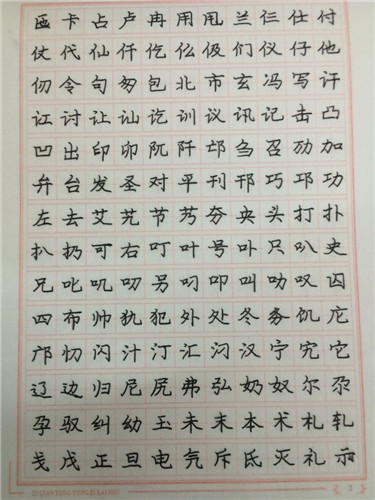 匤卡占卢冉用甩兰仨仕付
仗代仙仟仡仫伋们仪仔他
仞令句匆包北市玄冯写讦
讧讨让讪讫训议讯记击凸
凹出印卯阢阡邙刍召劢加
弁台发圣对平刊邗巧邛功
左去艾艽节艿夯央头打扑
扒扔可右叮叶号卟只叭史
兄叱叽叨另叼叩叫叻叹囚
四布帅犰犯外处冬务饥庀
邝忉闪汁汀汇汈汉宁宄它
辽边归尼尻弗弘奶奴尔尕
孕驭纠幼玉未末本术札轧
戋戊正旦电气斥氐灭礼示